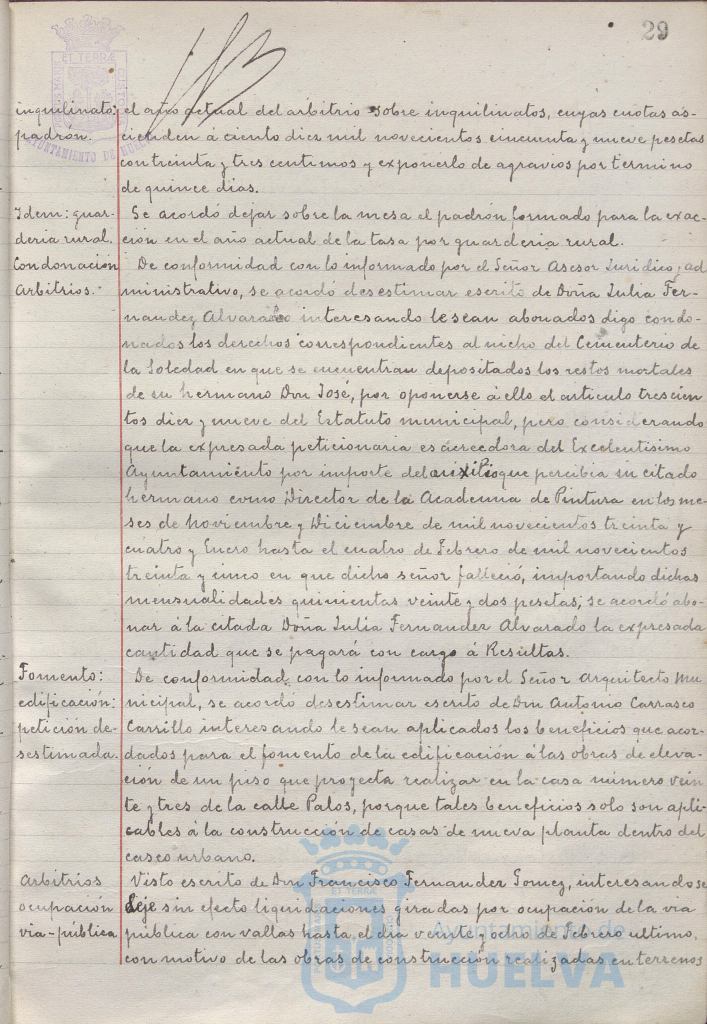 29
inquilinato: el año actual del arbitrio sobre inquilinatos, cuyas cuotas as-
padrón. cienden á ciento diez mil novecientos cincuenta y nueve pesetas
con treinta y tres centimos y exponerlo de agravios por termino
de quince dias.
Idem: guar- Se acordó dejar sobre la mesa el padrón formado para la exac-
deria rural. ción en el año actual de la tasa por guarderia rural.
Condonación De conformidad con lo informado por el Señor Asesor Juridico, ad
Arbitrios. ministrativo, se acordó desestimar escrito de Doña Julia Fer-
nandez Alvarado interesando le sean abonados digo condo-
nados los derechos correspondientes al nicho del Cementerio de
la Soledad en que se encuentran depositados los restos mortales
de su hermano Don José, por oponerse á ello el articulo trescien
tos diez y nueve del Estatuto municipal, pero considerando
que la expresada peticionaria es acreedora del Excelentisimo
Ayuntamiento por importe del auxilio que percibia su citado
hermano como Director de la Academia de Pintura en los me-
ses de Noviembre y Diciembre de mil novecientos treinta y
cuatro y Enero hasta el cuatro de Febrero de mil novecientos
treinta y cinco en que dicho señor falleció, importando dichas
mensualidades quinientas veinte y dos pesetas, se acordó abo-
nar á la citada Doña Julia Fernandez Alvarado la expresada
cantidad que se pagará con cargo á Resultas.
Fomento: De conformidad con lo informado por el Señor Arquitecto Mu
edificación: nicipal, se acordó desestimar escrito de Don Antonio Carrasco
petición de- Carrillo interesando le sean aplicados los beneficios que acor-
sestimada. dados para el fomento de la edificación á las obras de eleva-
ción de un piso que proyecta realizar en la casa número vein
te y tres de la calle Palos, porque tales beneficios solo son apli-
cables á la construcción de casas de nueva planta dentro del
casco urbano.
Arbitrios Visto escrito de Don Francisco Fernandez Gomez, interesando se
ocupación deje sin efecto liquidaciones giradas por ocupación de la via
via-pública pública con vallas hasta el dia veinte y ocho de Febrero ultimo,
con motivo de las obras de construcción realizadas en terrenos
Ayuntamiento de
HUELVA